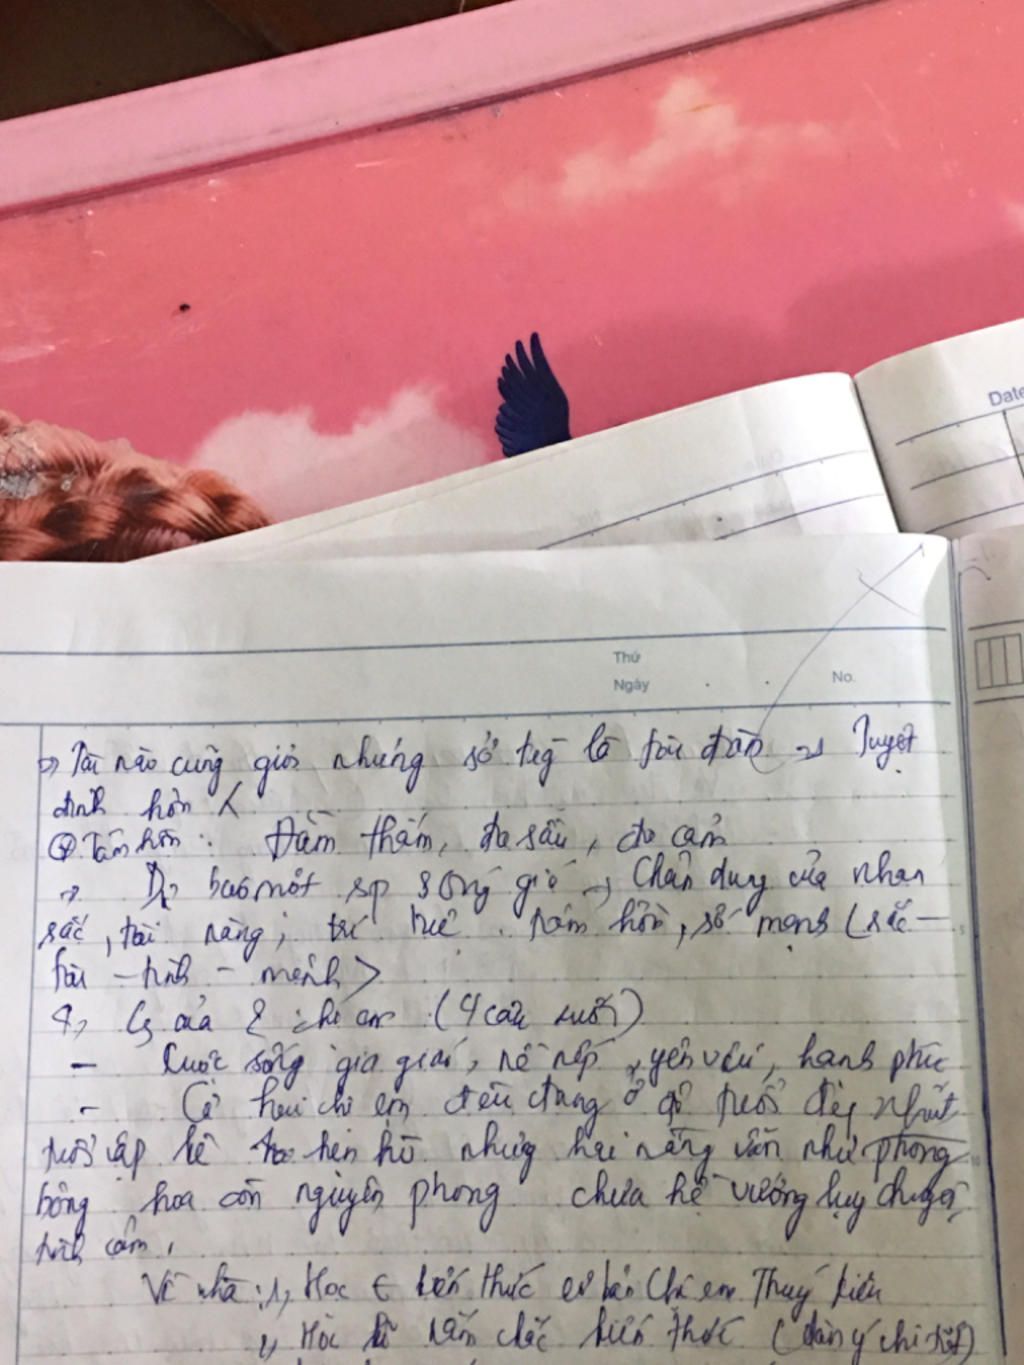 Date
Thứ
Ngày No.
=> Tài nào cũng giỏi nhưng sở là tài đàn -> Tuyệt
đỉnh hơn
Tâm hồn: Đằm thắm, đa sầu, đa cảm
-> báo một sp sóng gió -> Chân dung của nhan
sắc, tài năng, trí tuệ tâm hồn, số mệnh (sắc -
tài - tình - mệnh>
4, Cs của 2 chị em (4 câu cuối)
- Cuộc sống gia giáo, nề nếp, yên vui, hạnh phúc
- Cả hai chị em đều đang ở độ tuổi đẹp nhất
tuổi cập kê hẹn hò nhưng hai nàng vẫn như phong
bông hoa còn nguyên phong chưa hề vướng lụy chuyện
tình cảm,
Về nhà: 1, Học kiến thức cơ bản Chị em Thúy Kiều
Học nắm chắc kiến thức (dàn ý chi tiết)